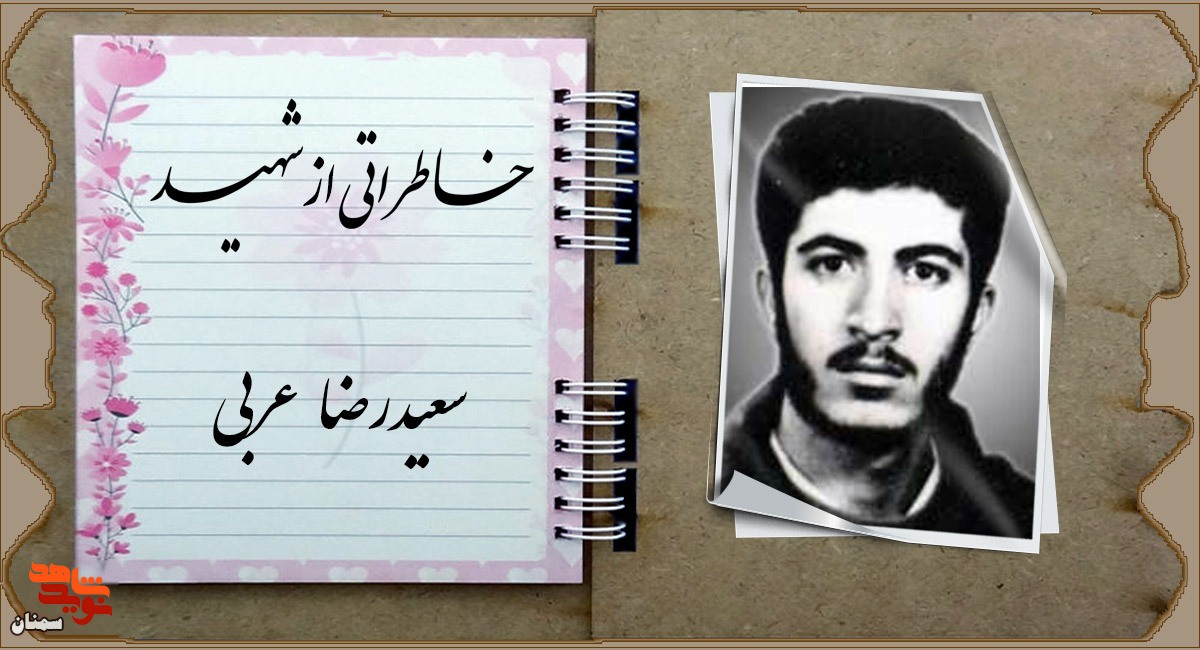 خاطراتی از شهید
سعیدرضا عربی
نوید شاهد
سمنان